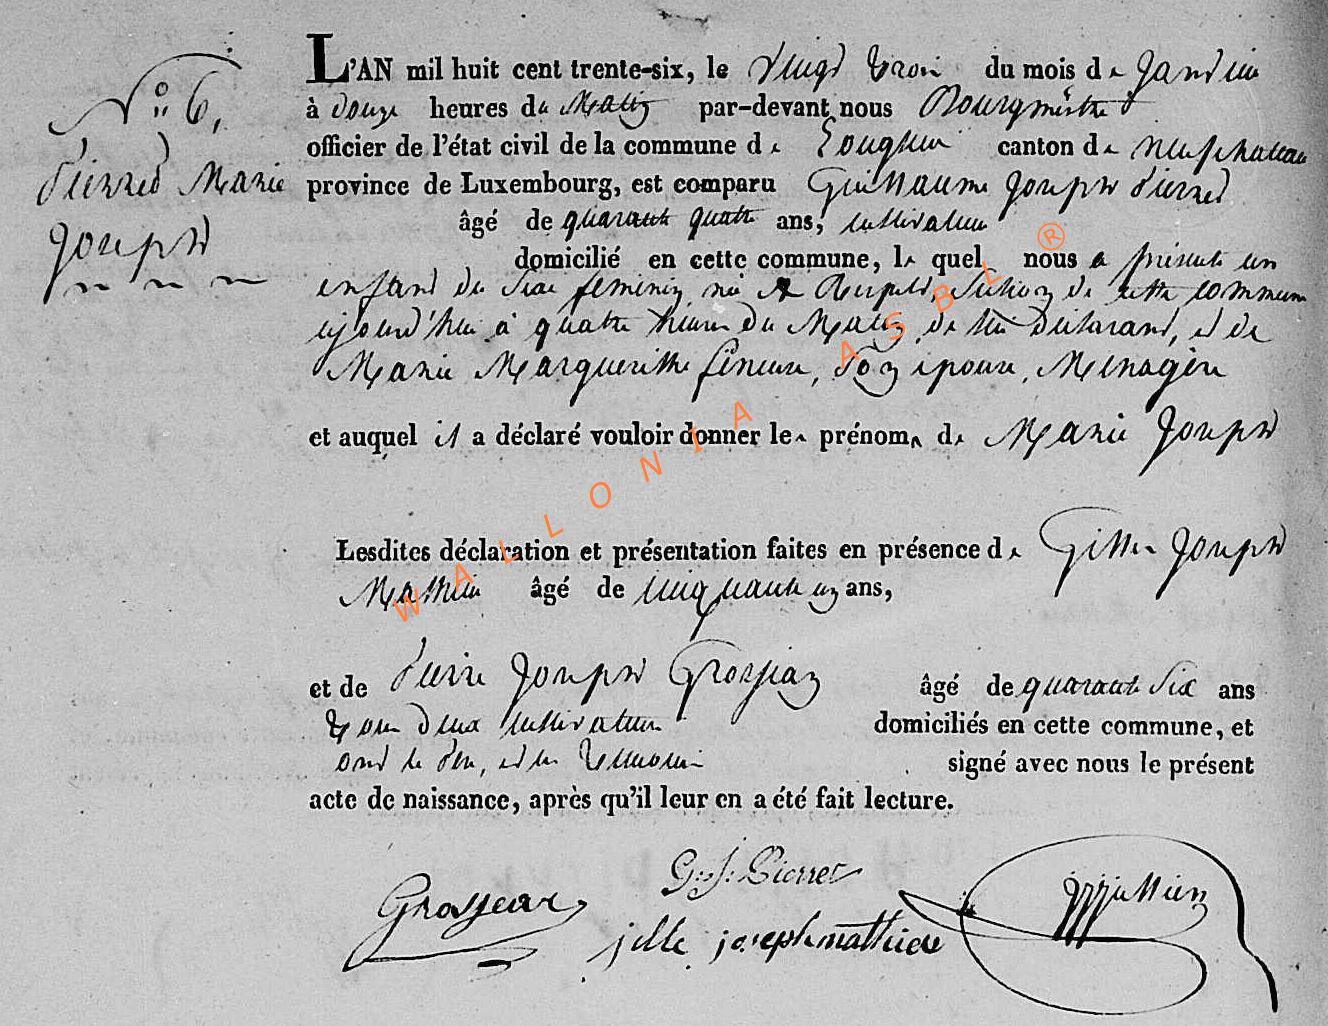 N° 6,
Pierret Marie
Joseph
L'AN mil huit cent trente-six, le vingt trois du mois de Janvier
à douze heures du Matin par-devant nous Bourgmestre
officier de l'état civil de la commune de canton de neufchateau
province de Luxembourg, est comparu Guillaume Joseph Pierret
âgé de quarante quatre ans, cultivateur
domicilié en cette commune, le quel nous a présenté un
enfant du Sexe feminin né à Section de cette commune
ajourd'hui à quatre heures du Matin, de lui déclarant, et de
Marie Marguerithe son épouse, Menagère
et auquel il a déclaré vouloir donner les prénoms de Marie Joseph
Lesdites déclaration et présentation faites en présence de Gille Joseph
Mathieu âgé de cinquante un ans,
et de Pierre Joseph Grosjean âgé de quarante Six ans
tous deux cultivateurs domiciliés en cette commune, et
ont le Père, et les Temoins signé avec nous le présent
acte de naissance, après qu'il leur en a été fait lecture.
Grosjean
G. J. Pierret
jille joseph mathieu
WALLONIA ASBL ®